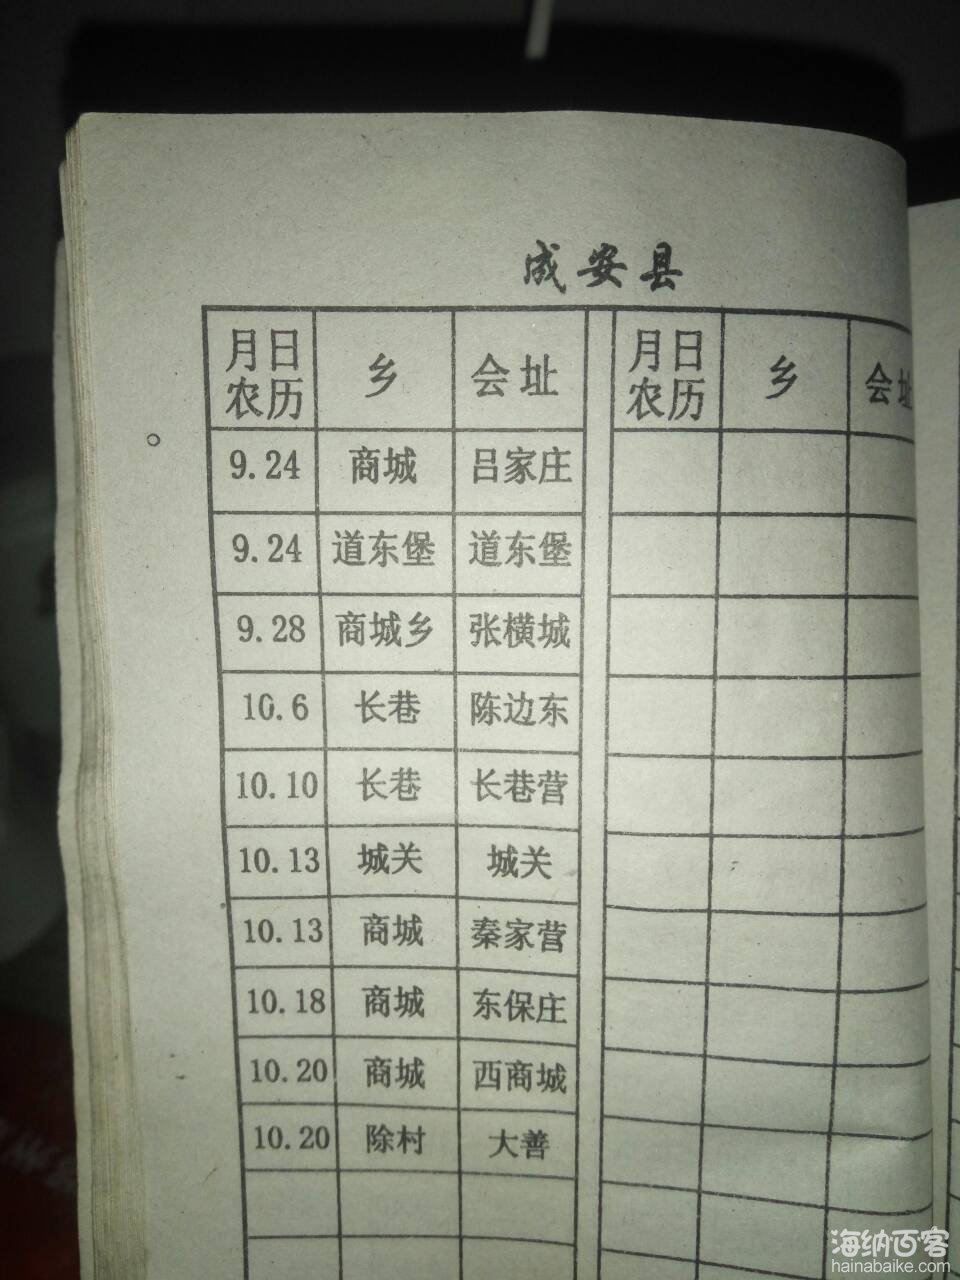 成安县
月日农历 乡 会址 月日农历 乡 会址
9.24 商城 吕家庄
9.24 道东堡 道东堡
9.28 商城乡 张横城
10.6 长巷 陈边东
10.10 长巷 长巷营
10.13 城关 城关
10.13 商城 秦家营
10.18 商城 东保庄
10.20 商城 西商城
10.20 除村 大善
海纳百客
hainabaike.com